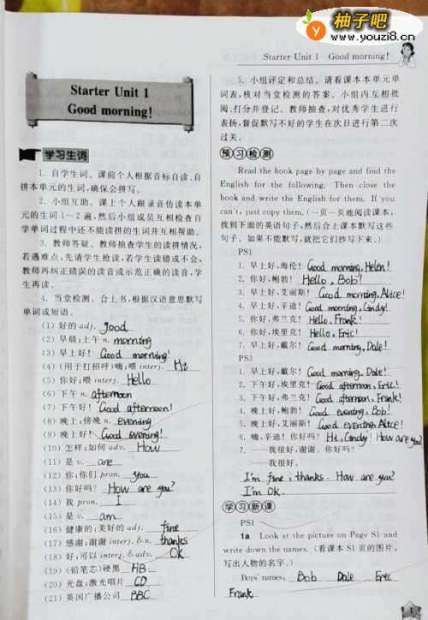 柚子吧
www.youzi8.cn
Starter Unit 1 Good morning!
Starter Unit 1
Good morning!
学习生词
1. 自学生词。课前个人根据音标自读、自
拼本单元的生词,确保会拼写。
2. 小组互助。课上个人跟录音仿读本单
元的生词1~2遍,然后小组成员互相检查自
学单词过程中还不能拼读的生词并互相帮助。
3. 教师答疑。教师抽查学生的读拼情况,
若遇难点,先请学生抢读,若学生读错或不会,
教师再纠正错误的读音或示范正确的读音,学
生再读。
4. 当堂检测。合上书,根据汉语意思默写
单词或短语。
(1) 好的 adj. good
(2) 早晨;上午 n. morning
(3) 早上好! Good morning!
(4) (用于打招呼)嗨;喂 interj. Hi
(5) 你好;喂 interj. Hello
(6) 下午 n. afternoon
(7) 下午好! Good afternoon!
(8) 晚上;傍晚 n. evening
(9) 晚上好! Good evening!
(10) 怎样;如何 adv. How
(11) 是 v. are
(12) 你;你们 pron. you
(13) 你好吗? How are you?
(14) 我 pron. I
(15) 是 v. am
(16) 健康的;美好的 adj. fine
(17) 感谢;谢谢 interj. & n. thanks
(18) 好;可以 interj. & adv. OK
(19) (铅笔芯)硬黑 HB
(20) 光盘;激光唱片 CD
(21) 英国广播公司 BBC
5. 小组评定和总结。请看课本本单元单
词表,核对当堂检测的答案。小组内互相批
阅、打分并登记。教师抽查,对优秀学生进行
表扬,督促默写不好的学生在次日进行第二次
过关。
预习检测
Read the book page by page and find the
English for the following. Then close the
book and write the English for them. If you
can't, just copy them. (一页一页地阅读课本,
找到下面的英语句子,然后合上课本默写这些
句子。如果不能默写,就把它们抄写下来。)
PS1
1. 早上好,海伦! Good morning, Helen!
2. 你好,鲍勃! Hello, Bob!
3. 早上好,艾丽斯! Good morning, Alice!
4. 早上好,辛迪! Good morning, Cindy!
5. 你好,弗兰克! Hello, Frank!
6. 你好,埃里克! Hello, Eric!
7. 早上好,戴尔! Good morning, Dale!
PS3
1. 早上好,戴尔! Good morning, Dale!
2. 下午好,埃里克! Good afternoon, Eric!
3. 下午好,弗兰克! Good afternoon, Frank!
4. 晚上好,鲍勃! Good evening, Bob!
5. 晚上好,艾丽斯! Good evening, Alice!
6. 嗨,辛迪!你好吗? Hi, Cindy! How are you?
7. ——我很好,谢谢。你好吗?
——我很好。
I'm fine, thanks. How are you?
I'm OK.
学习新课
PS1
1a Look at the picture on Page S1 and
write down the names. (看课本S1页的图片,
写出人物的名字。)
Boys' names: Bob Dale Eric
Frank
1